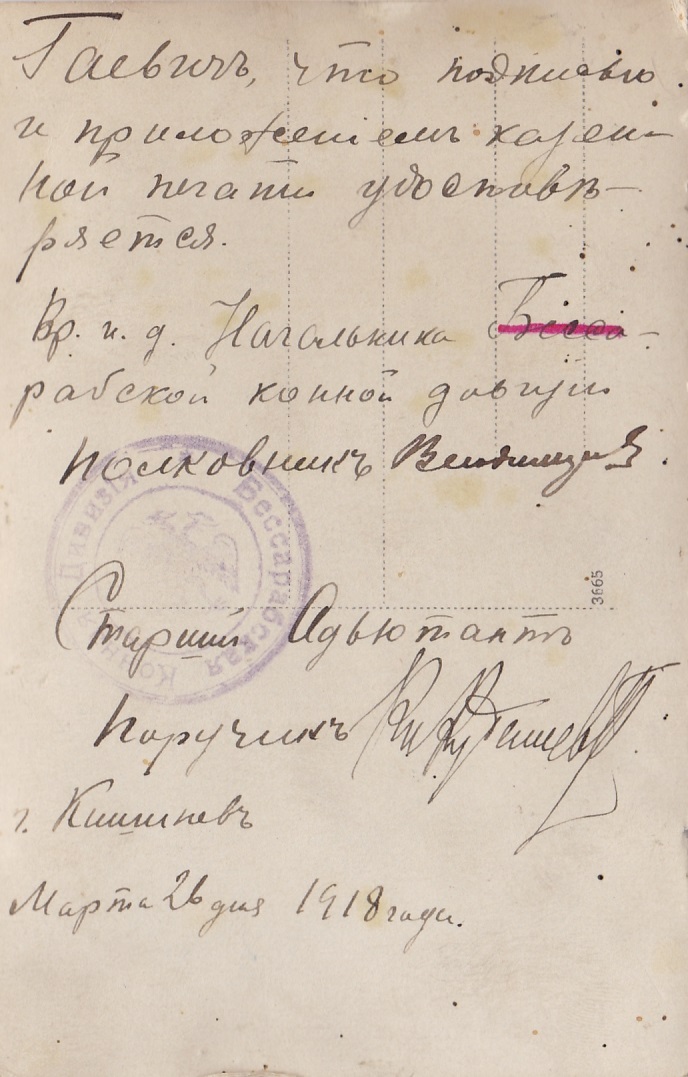 Гаевичъ, что подписью
и приложеніемъ казен-
ной печати удостовѣ-
ряется.
Вр. и. д. Начальника Бесса-
рабской конной дивизіи
Полковникъ
Бессарабская Конная Дивизія
3665
Старшій Адъютантъ
Поручикъ
г. Кишиневъ
Марта 26 дня 1918 года.